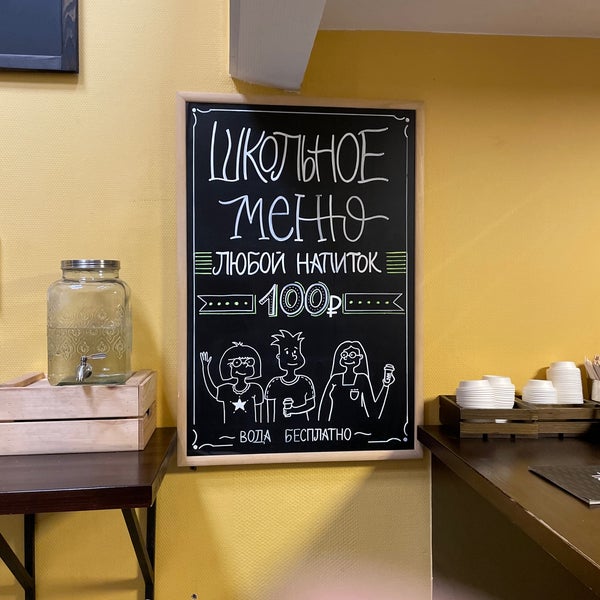 ШКОЛЬНОЕ
МЕНЮ
ЛЮБОЙ НАПИТОК
100₽
~ ВОДА БЕСПЛАТНО ~